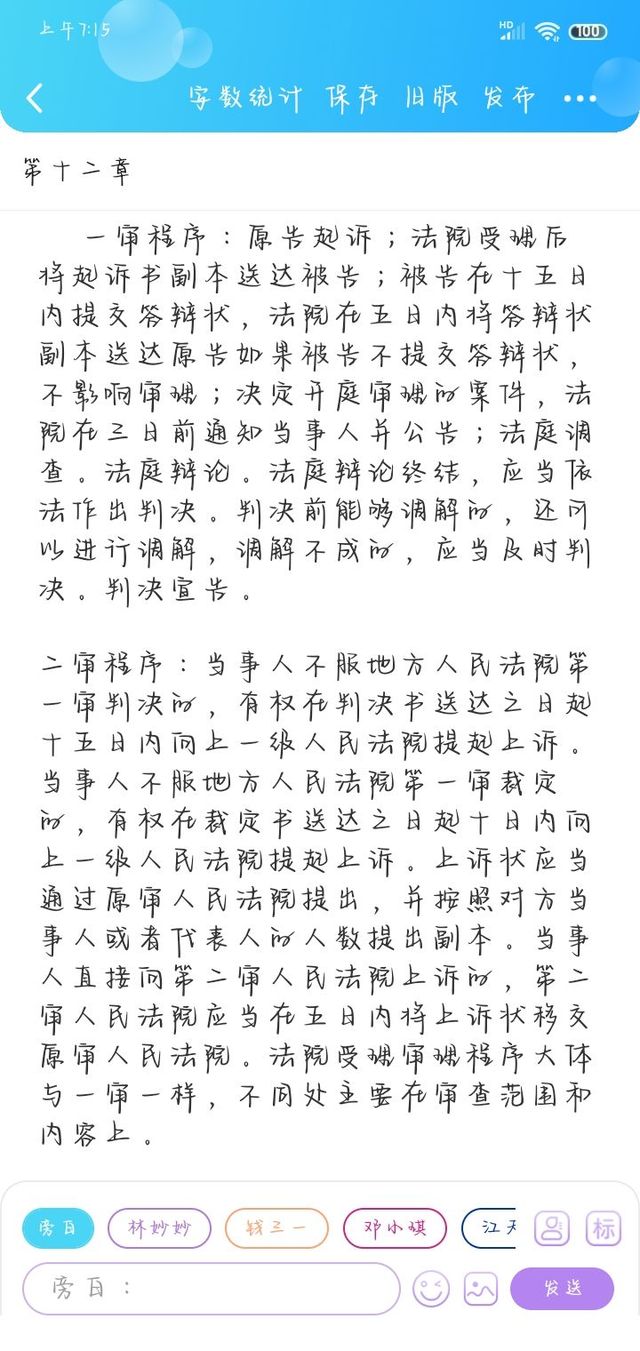 上午7:15
HD
100
字数统计 保存 旧版 发布
第十二章
一审程序：原告起诉；法院受理后
将起诉书副本送达被告；被告在十五日
内提交答辩状，法院在五日内将答辩状
副本送达原告如果被告不提交答辩状，
不影响审理；决定开庭审理的案件，法
院在三日前通知当事人并公告；法庭调
查。法庭辩论。法庭辩论终结，应当依
法作出判决。判决前能够调解的，还可
以进行调解，调解不成的，应当及时判
决。判决宣告。
二审程序：当事人不服地方人民法院第
一审判决的，有权在判决书送达之日起
十五日内向上一级人民法院提起上诉。
当事人不服地方人民法院第一审裁定
的，有权在裁定书送达之日起十日内向
上一级人民法院提起上诉。上诉状应当
通过原审人民法院提出，并按照对方当
事人或者代表人的人数提出副本。当事
人直接向第二审人民法院上诉的，第二
审人民法院应当在五日内将上诉状移交
原审人民法院。法院受理审理程序大体
与一审一样，不同处主要在审查范围和
内容上。
旁白 林妙妙 钱三一 邓小琪 江天 标
旁白： 发送